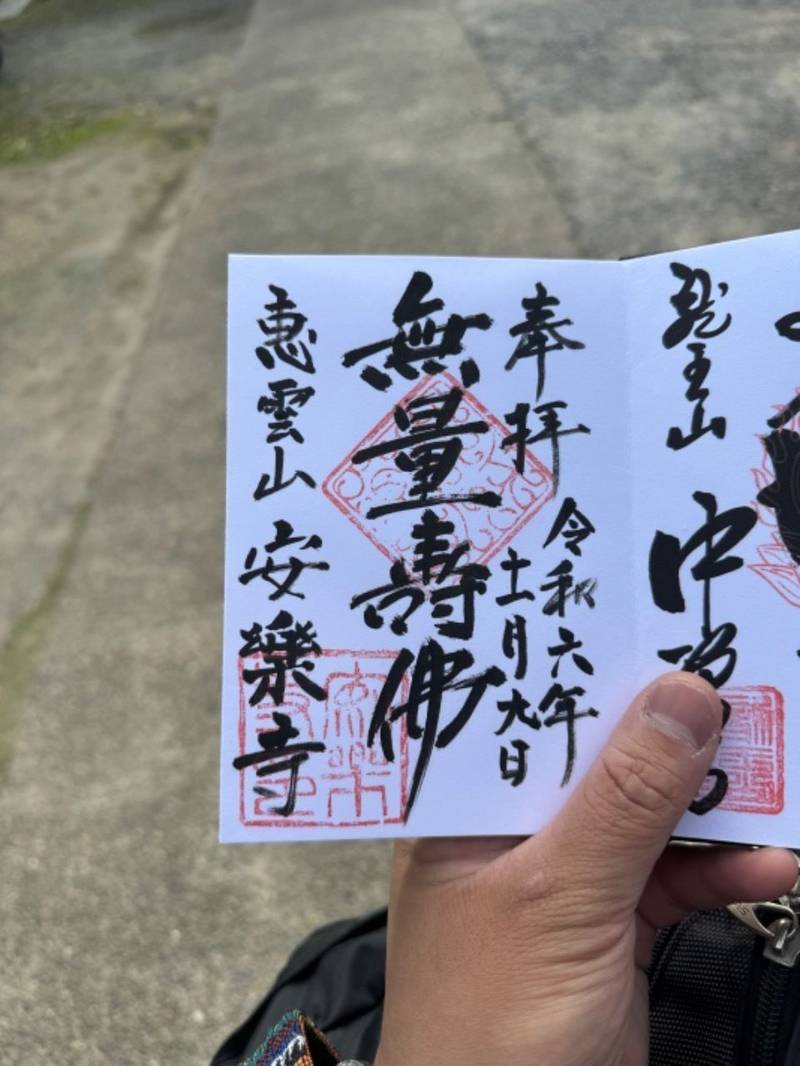 龍王山
奉拝
令和六年
十一月九日
無量壽佛
惠雲山
安樂寺